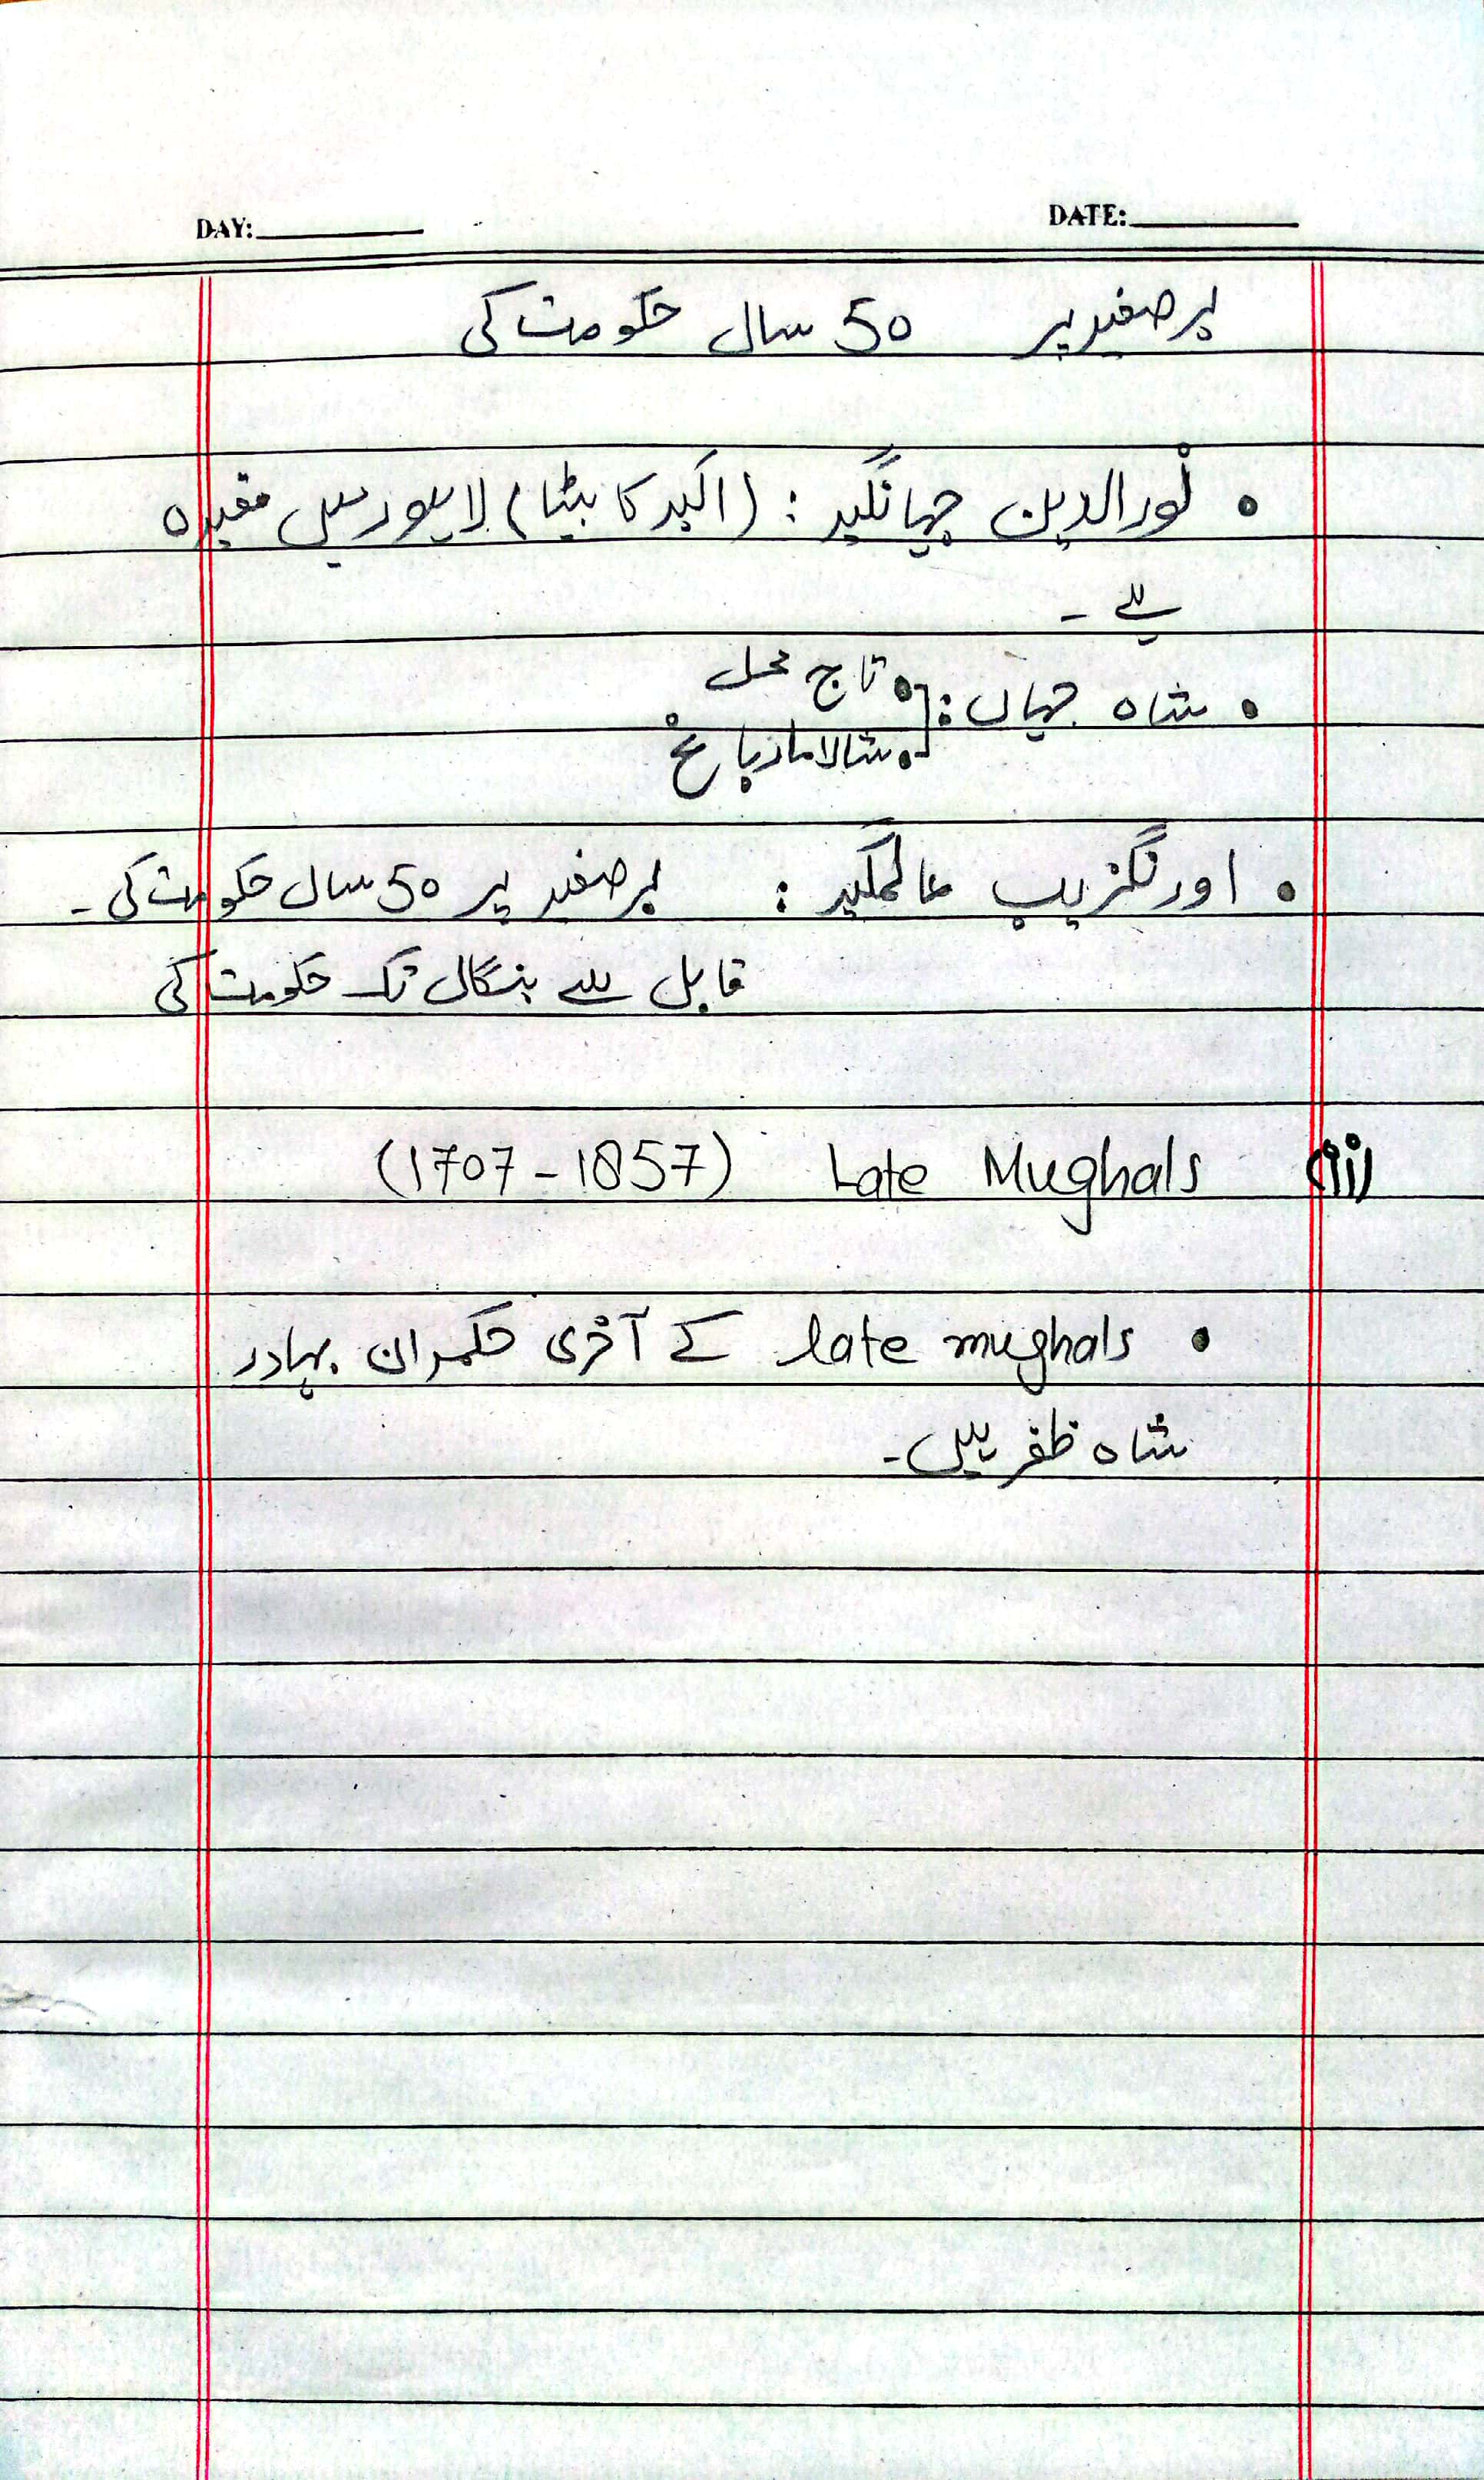 DAY: DATE:
برصغیر پر 50 سال حکومت کی
• نورالدین جہانگیر : (اکبر کا بیٹا) لاہور میں مقبرہ
ہے ۔
• شاہ جہاں : • تاج محل
• شالامار باغ
• اورنگزیب عالمگیر : برصغیر پر 50 سال حکومت کی ۔
قابل سے بنگال تک حکومت کی
(ii) Late Mughals (1707 - 1857)
• late mughals کے آخری حکمران بہادر
شاہ ظفر ہیں ۔